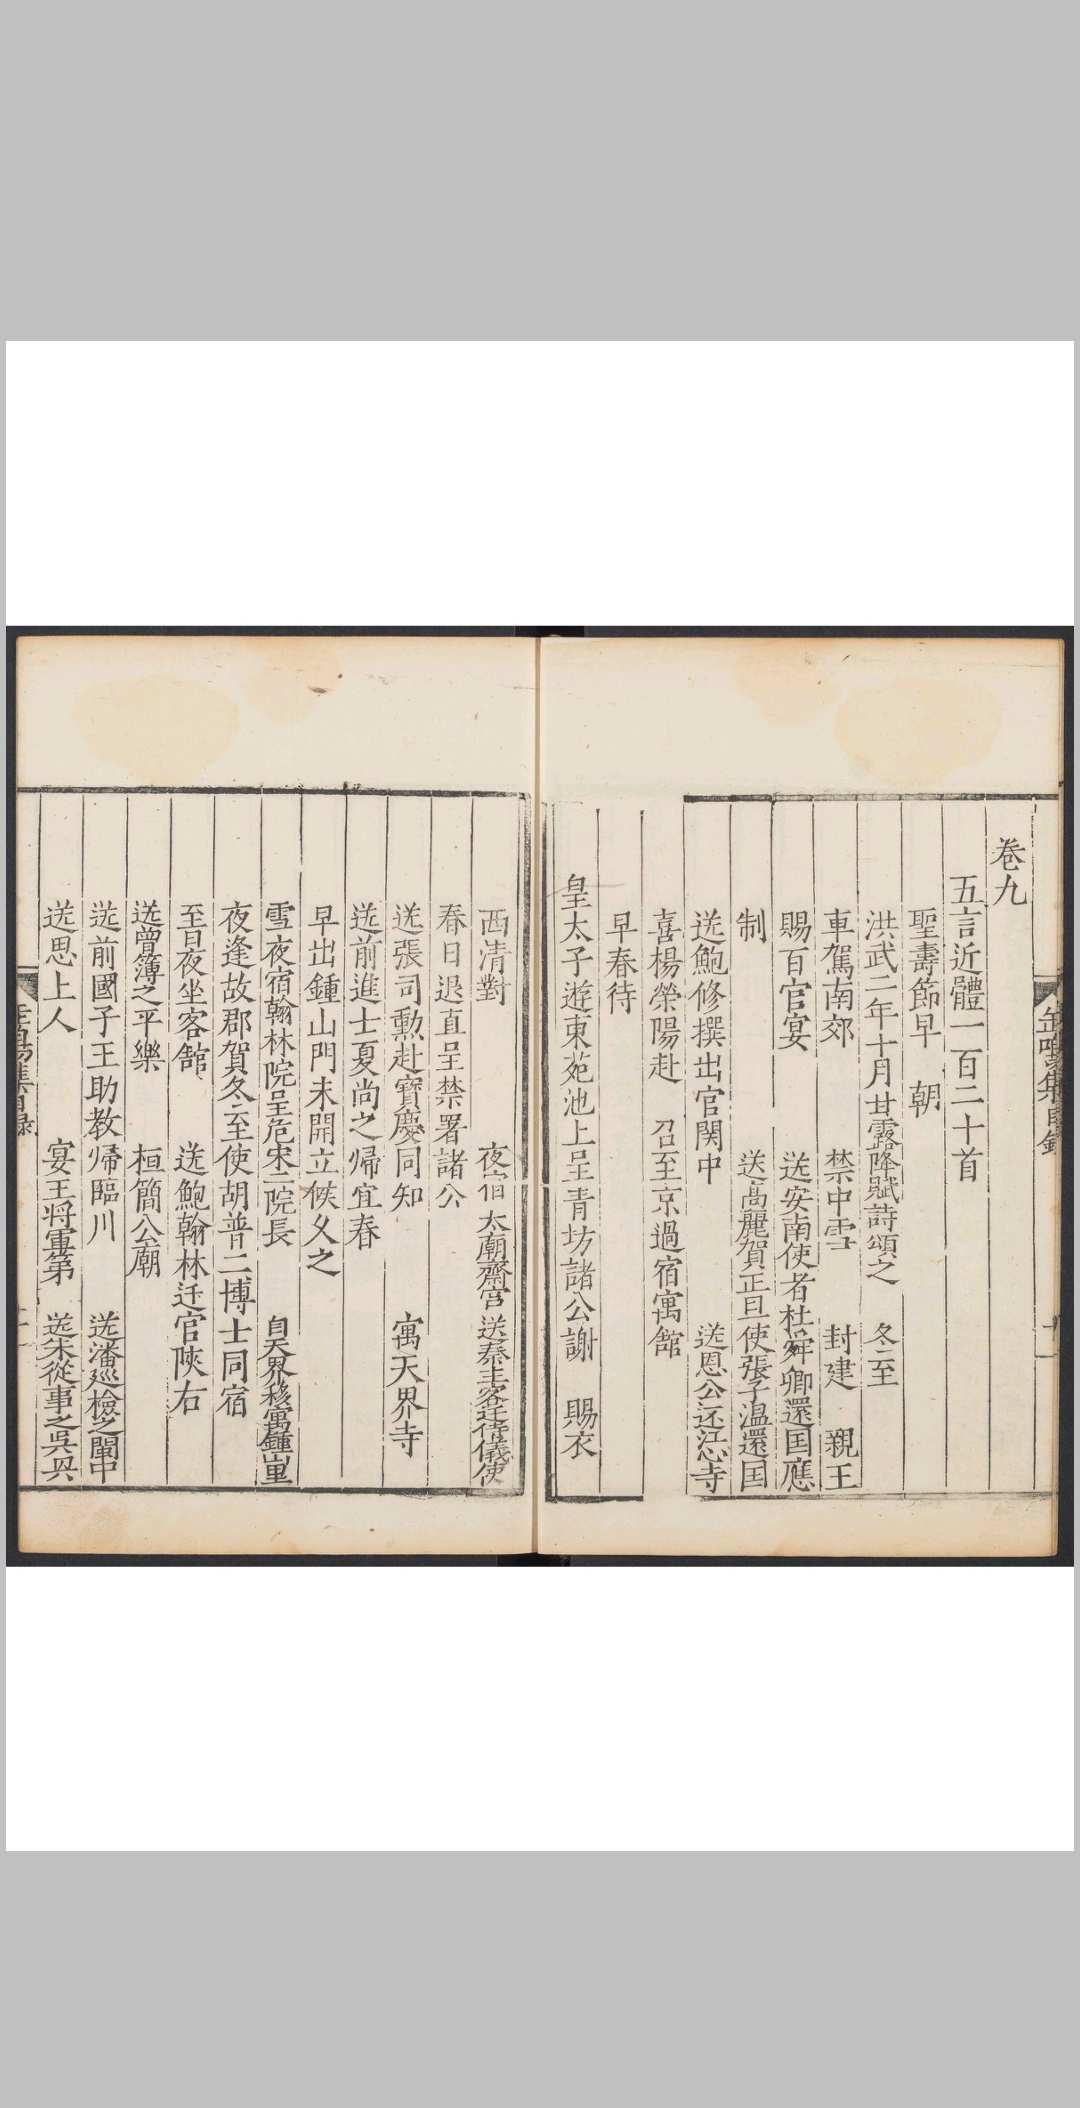 卷九
五言近體一百二十首
聖壽節早　朝
洪武二年十月甘露降賦詩頌之　冬至
車駕南郊　禁中雪　封建　親王
賜百官宴　送安南使者杜舜卿還国應
制　送高麗賀正旦使張子温還国
送鮑修撰出官関中　送恩公还江心寺
喜楊滎陽赴　召至京過宿寓館
早春待
皇太子遊東苑池上呈青坊諸公謝　賜衣
西清對　夜宿　太廟齋宫　送秦主客　儀使
春日退直呈禁署諸公
送張司勲赴寶慶同知　寓天界寺
送前進士夏尚之帰宜春
早出鍾山門未開立候久之
雪夜宿翰林院呈危宋二院長　自天界移寓鍾山里
夜逢故郡賀冬至使胡普二博士同宿
至日夜坐客舘　送鮑翰林迁官陝右
送曾簿之平樂　桓簡公廟
送前國子王助教帰臨川　送潘巡檢之閩中
送思上人　宴王将軍第　送朱從事之吳興